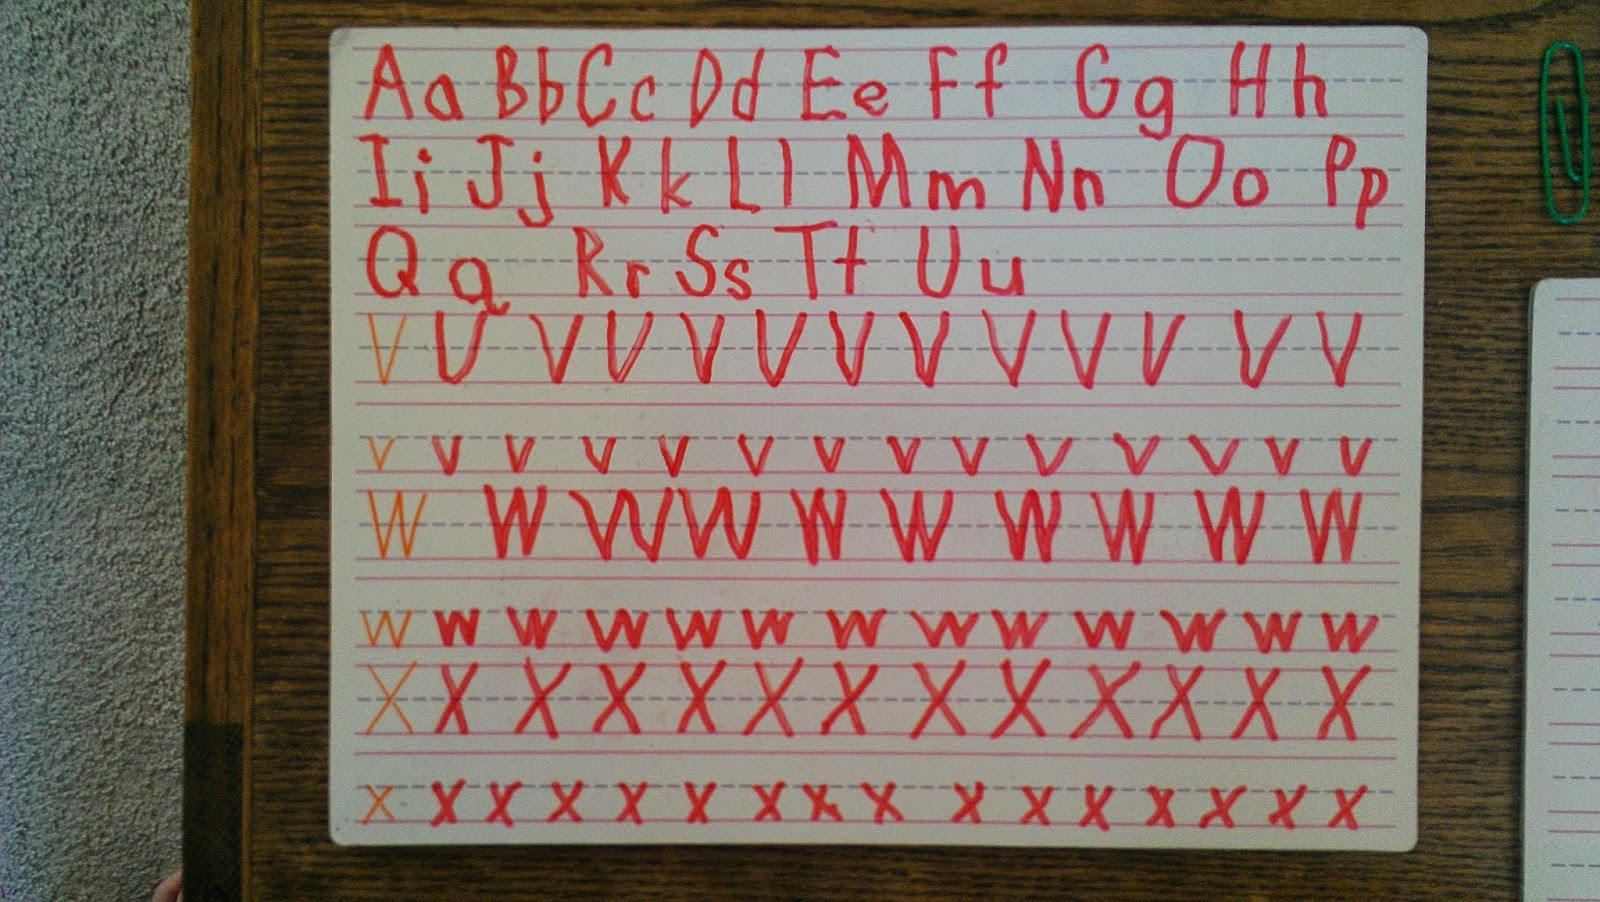 Aa Bb Cc Dd Ee Ff Gg Hh
Ii Jj Kk Ll Mm Nn Oo Pp
Qq Rr Ss Tt Uu
V V V V V V V V V V V V V
v v v v v v v v v v v v v v
W W W W W W W W W W
w w w w w w w w w w w w w
X X X X X X X X X X X X X
x x x x x x x x x x x x x x x x